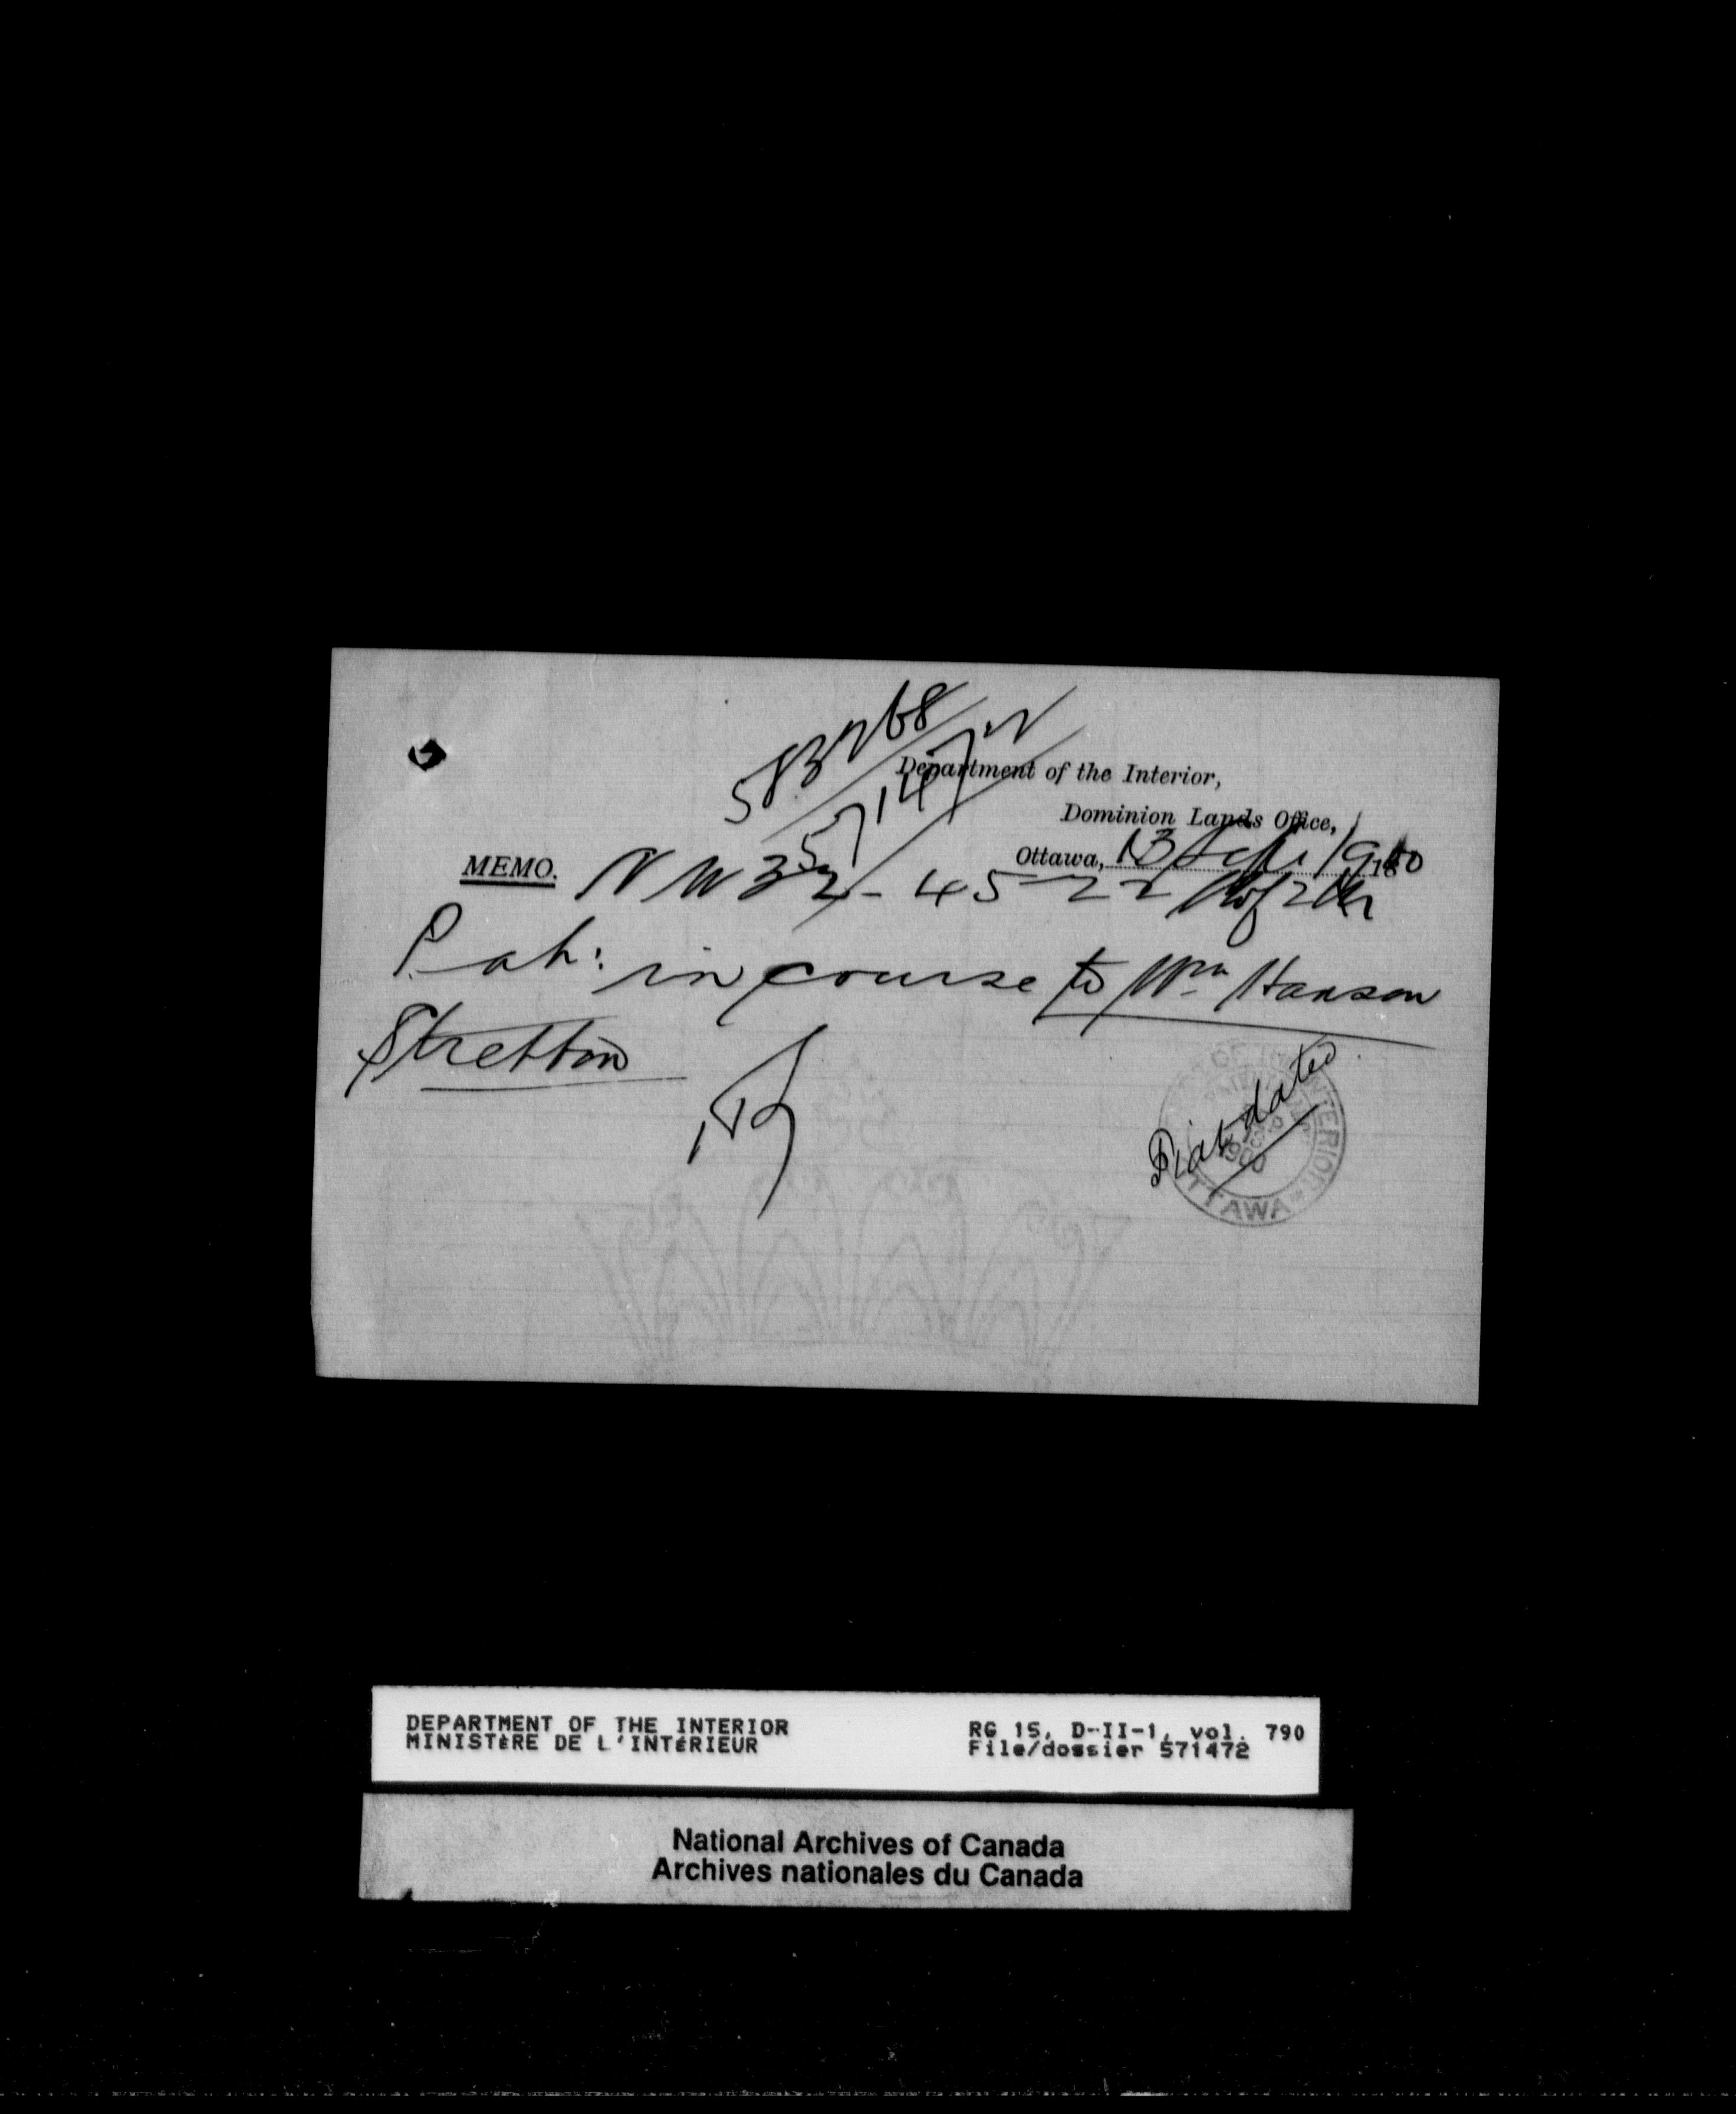 583768
571472
Department of the Interior,
Dominion Lands Office,
Ottawa, 13 Sept 1900
MEMO. NW 32 - 45 22 W of 2 M
Pat: in course to Wm Hanson
Stretton
DEPT OF INTERIOR
1900
OTTAWA
DEPARTMENT OF THE INTERIOR RG 15, D-II-1, vol. 790
MINISTèRE DE L'INTéRIEUR File/dossier 571472
National Archives of Canada
Archives nationales du Canada